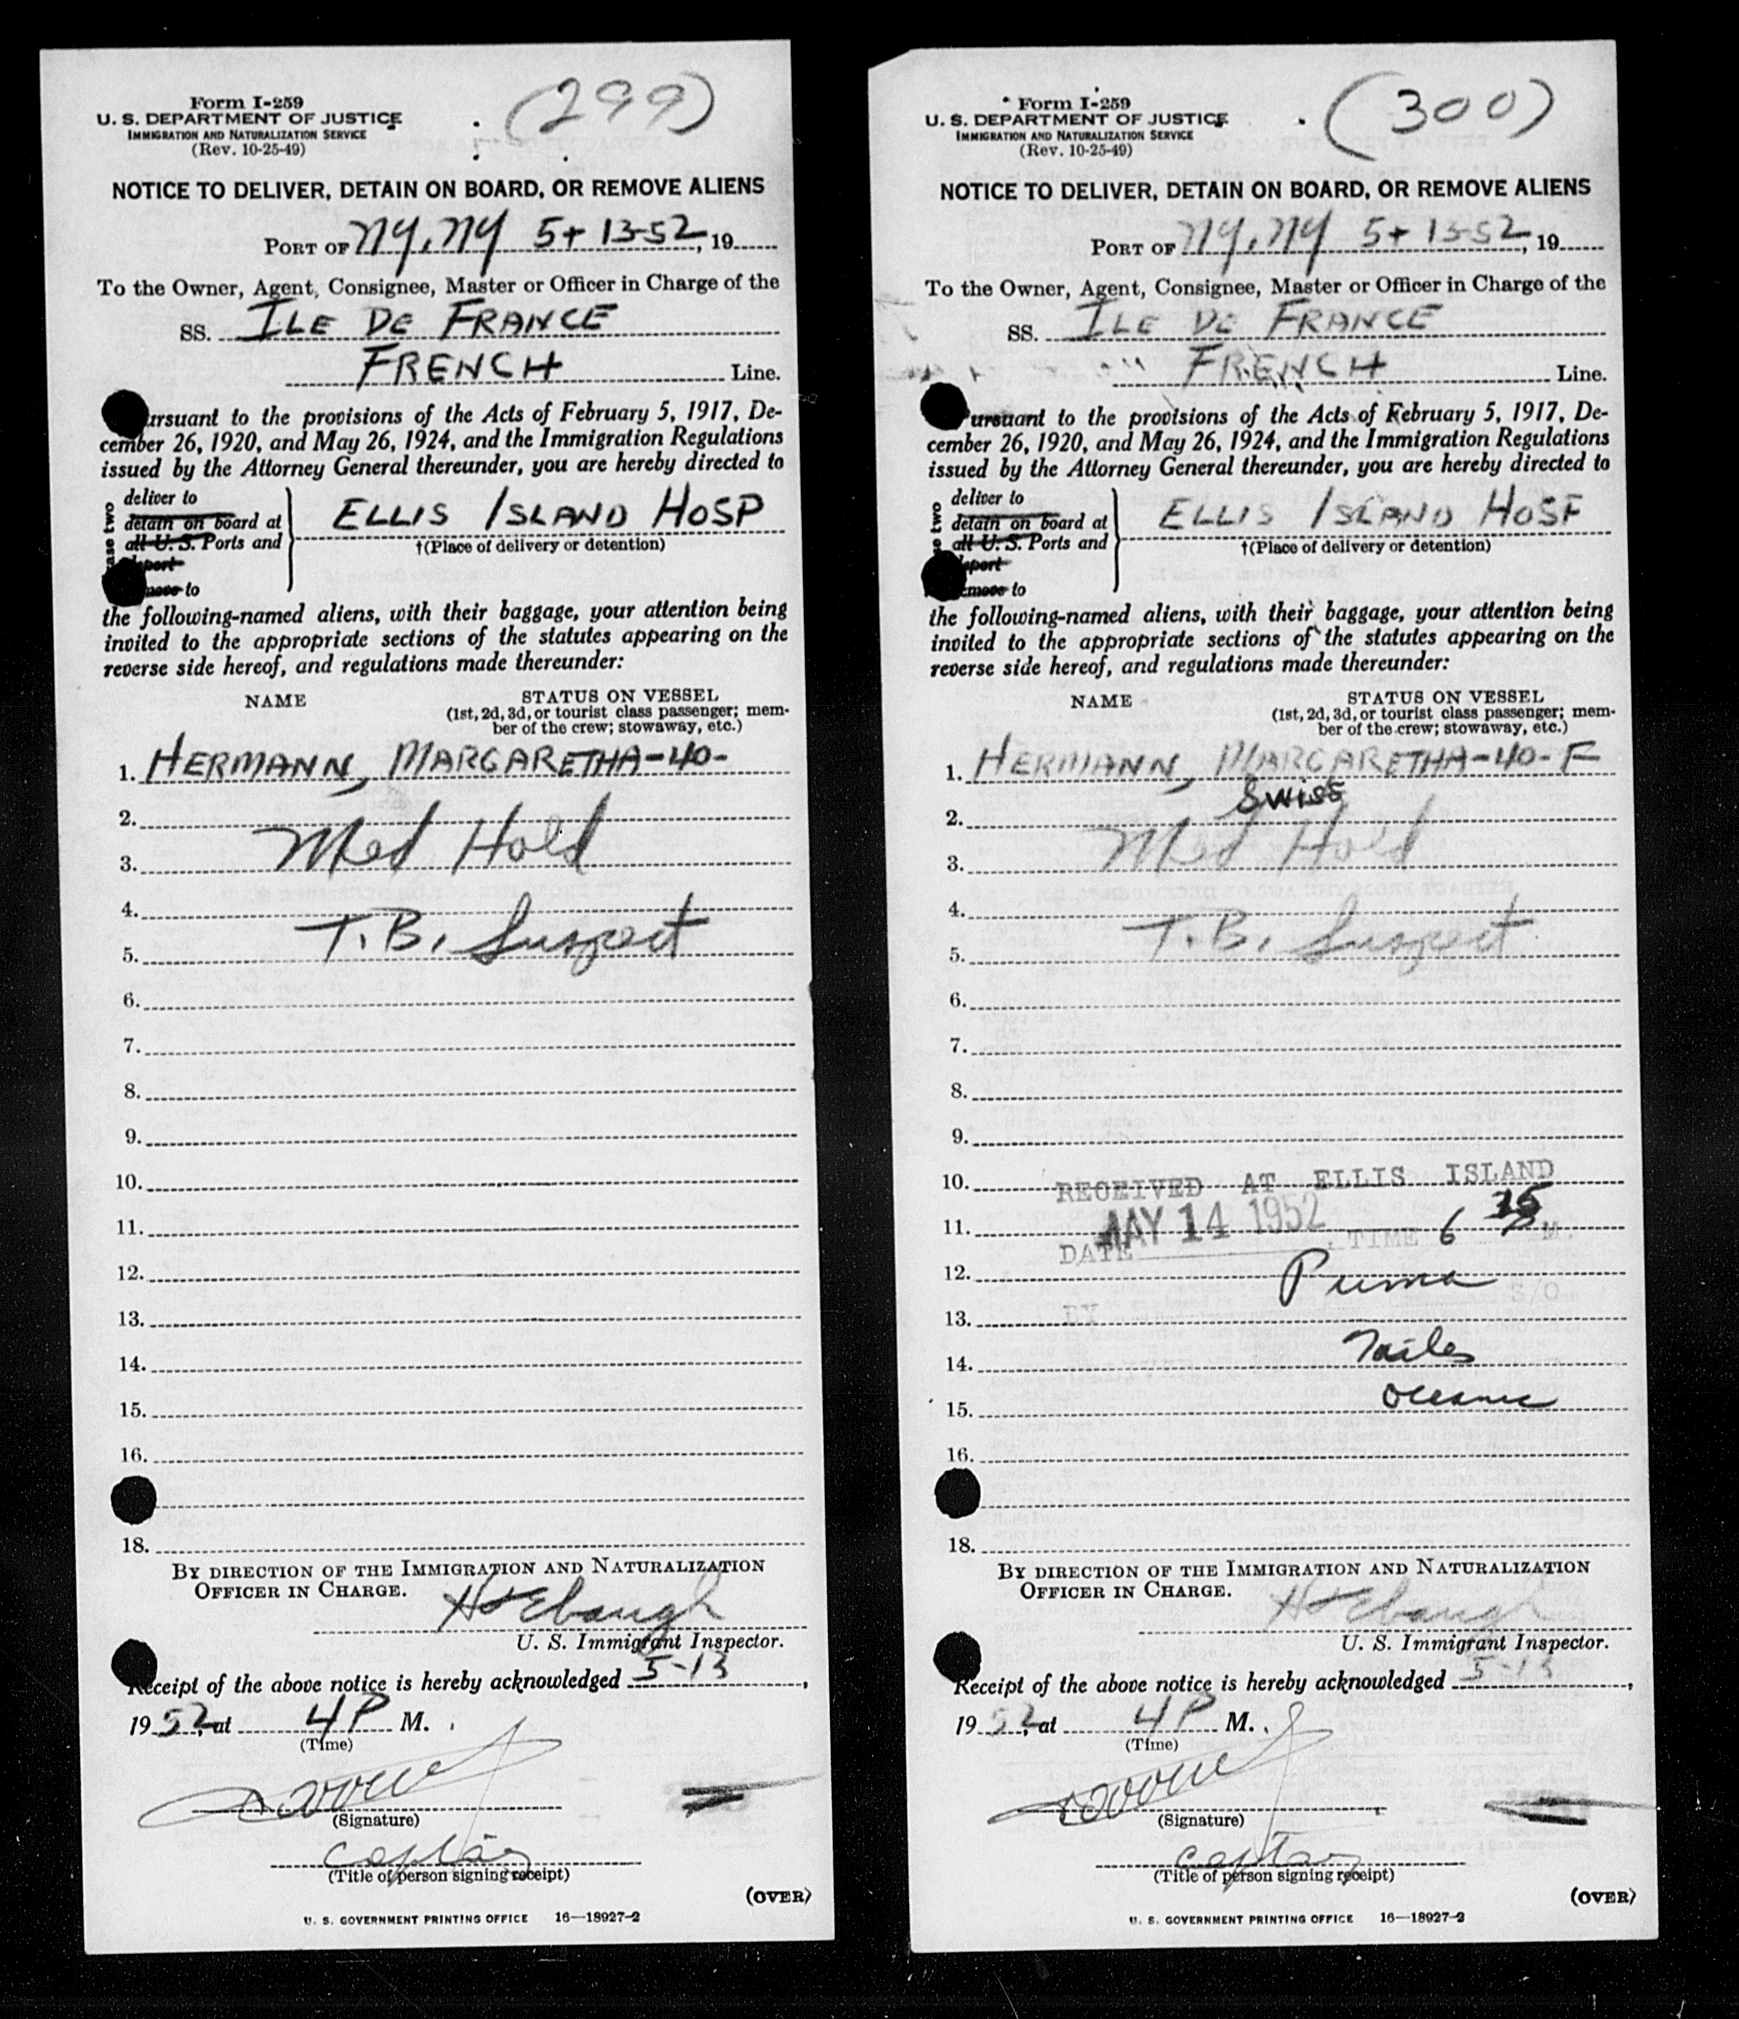 Form I-259
U. S. DEPARTMENT OF JUSTICE
IMMIGRATION AND NATURALIZATION SERVICE
(Rev. 10-25-49)
(299)
NOTICE TO DELIVER, DETAIN ON BOARD, OR REMOVE ALIENS
PORT OF NY, NY 5+ 13-52, 19
To the Owner, Agent, Consignee, Master or Officer in Charge of the
SS. ILE DE FRANCE
FRENCH Line.
ursuant to the provisions of the Acts of February 5, 1917, De-
cember 26, 1920, and May 26, 1924, and the Immigration Regulations
issued by the Attorney General thereunder, you are hereby directed to
deliver to
detain on board at
all U. S. Ports and
port
move to
ELLIS ISLAND HOSP
†(Place of delivery or detention)
the following-named aliens, with their baggage, your attention being
invited to the appropriate sections of the statutes appearing on the
reverse side hereof, and regulations made thereunder:
NAME
STATUS ON VESSEL
(1st, 2d, 3d, or tourist class passenger; mem-
ber of the crew; stowaway, etc.)
1. HERMANN, MARGARETHA-40-
2.
3. Med Hold
4.
5. T.B. Suspect
6.
7.
8.
9.
10.
11.
12.
13.
14.
15.
16.
18.
BY DIRECTION OF THE IMMIGRATION AND NATURALIZATION
OFFICER IN CHARGE.
U. S. Immigrant Inspector.
Receipt of the above notice is hereby acknowledged 5-13,
1952, at 4 P M.
(Time)
(Signature)
(Title of person signing receipt)
(OVER)
U. S. GOVERNMENT PRINTING OFFICE 16—18927-2
Form I-259
U. S. DEPARTMENT OF JUSTICE
IMMIGRATION AND NATURALIZATION SERVICE
(Rev. 10-25-49)
(300)
NOTICE TO DELIVER, DETAIN ON BOARD, OR REMOVE ALIENS
PORT OF NY, NY 5+ 13-52, 19
To the Owner, Agent, Consignee, Master or Officer in Charge of the
SS. ILE DE FRANCE
FRENCH Line.
ursuant to the provisions of the Acts of February 5, 1917, De-
cember 26, 1920, and May 26, 1924, and the Immigration Regulations
issued by the Attorney General thereunder, you are hereby directed to
deliver to
detain on board at
all U. S. Ports and
port
move to
ELLIS ISLAND HOSP
†(Place of delivery or detention)
the following-named aliens, with their baggage, your attention being
invited to the appropriate sections of the statutes appearing on the
reverse side hereof, and regulations made thereunder:
NAME
STATUS ON VESSEL
(1st, 2d, 3d, or tourist class passenger; mem-
ber of the crew; stowaway, etc.)
1. HERMANN, MARGARETHA-40-F
SWISS
2.
3. Med Hold
4.
5. T.B. Suspect
6.
7.
8.
9.
10. RECEIVED AT ELLIS ISLAND
11. DATE MAY 14 1952, TIME 6 M.
12. Puma
13. BY S/O
14.
15. Oceanic
16.
18.
BY DIRECTION OF THE IMMIGRATION AND NATURALIZATION
OFFICER IN CHARGE.
U. S. Immigrant Inspector.
Receipt of the above notice is hereby acknowledged 5-13,
1952, at 4 P M.
(Time)
(Signature)
(Title of person signing receipt)
(OVER)
U. S. GOVERNMENT PRINTING OFFICE 16—18927-2